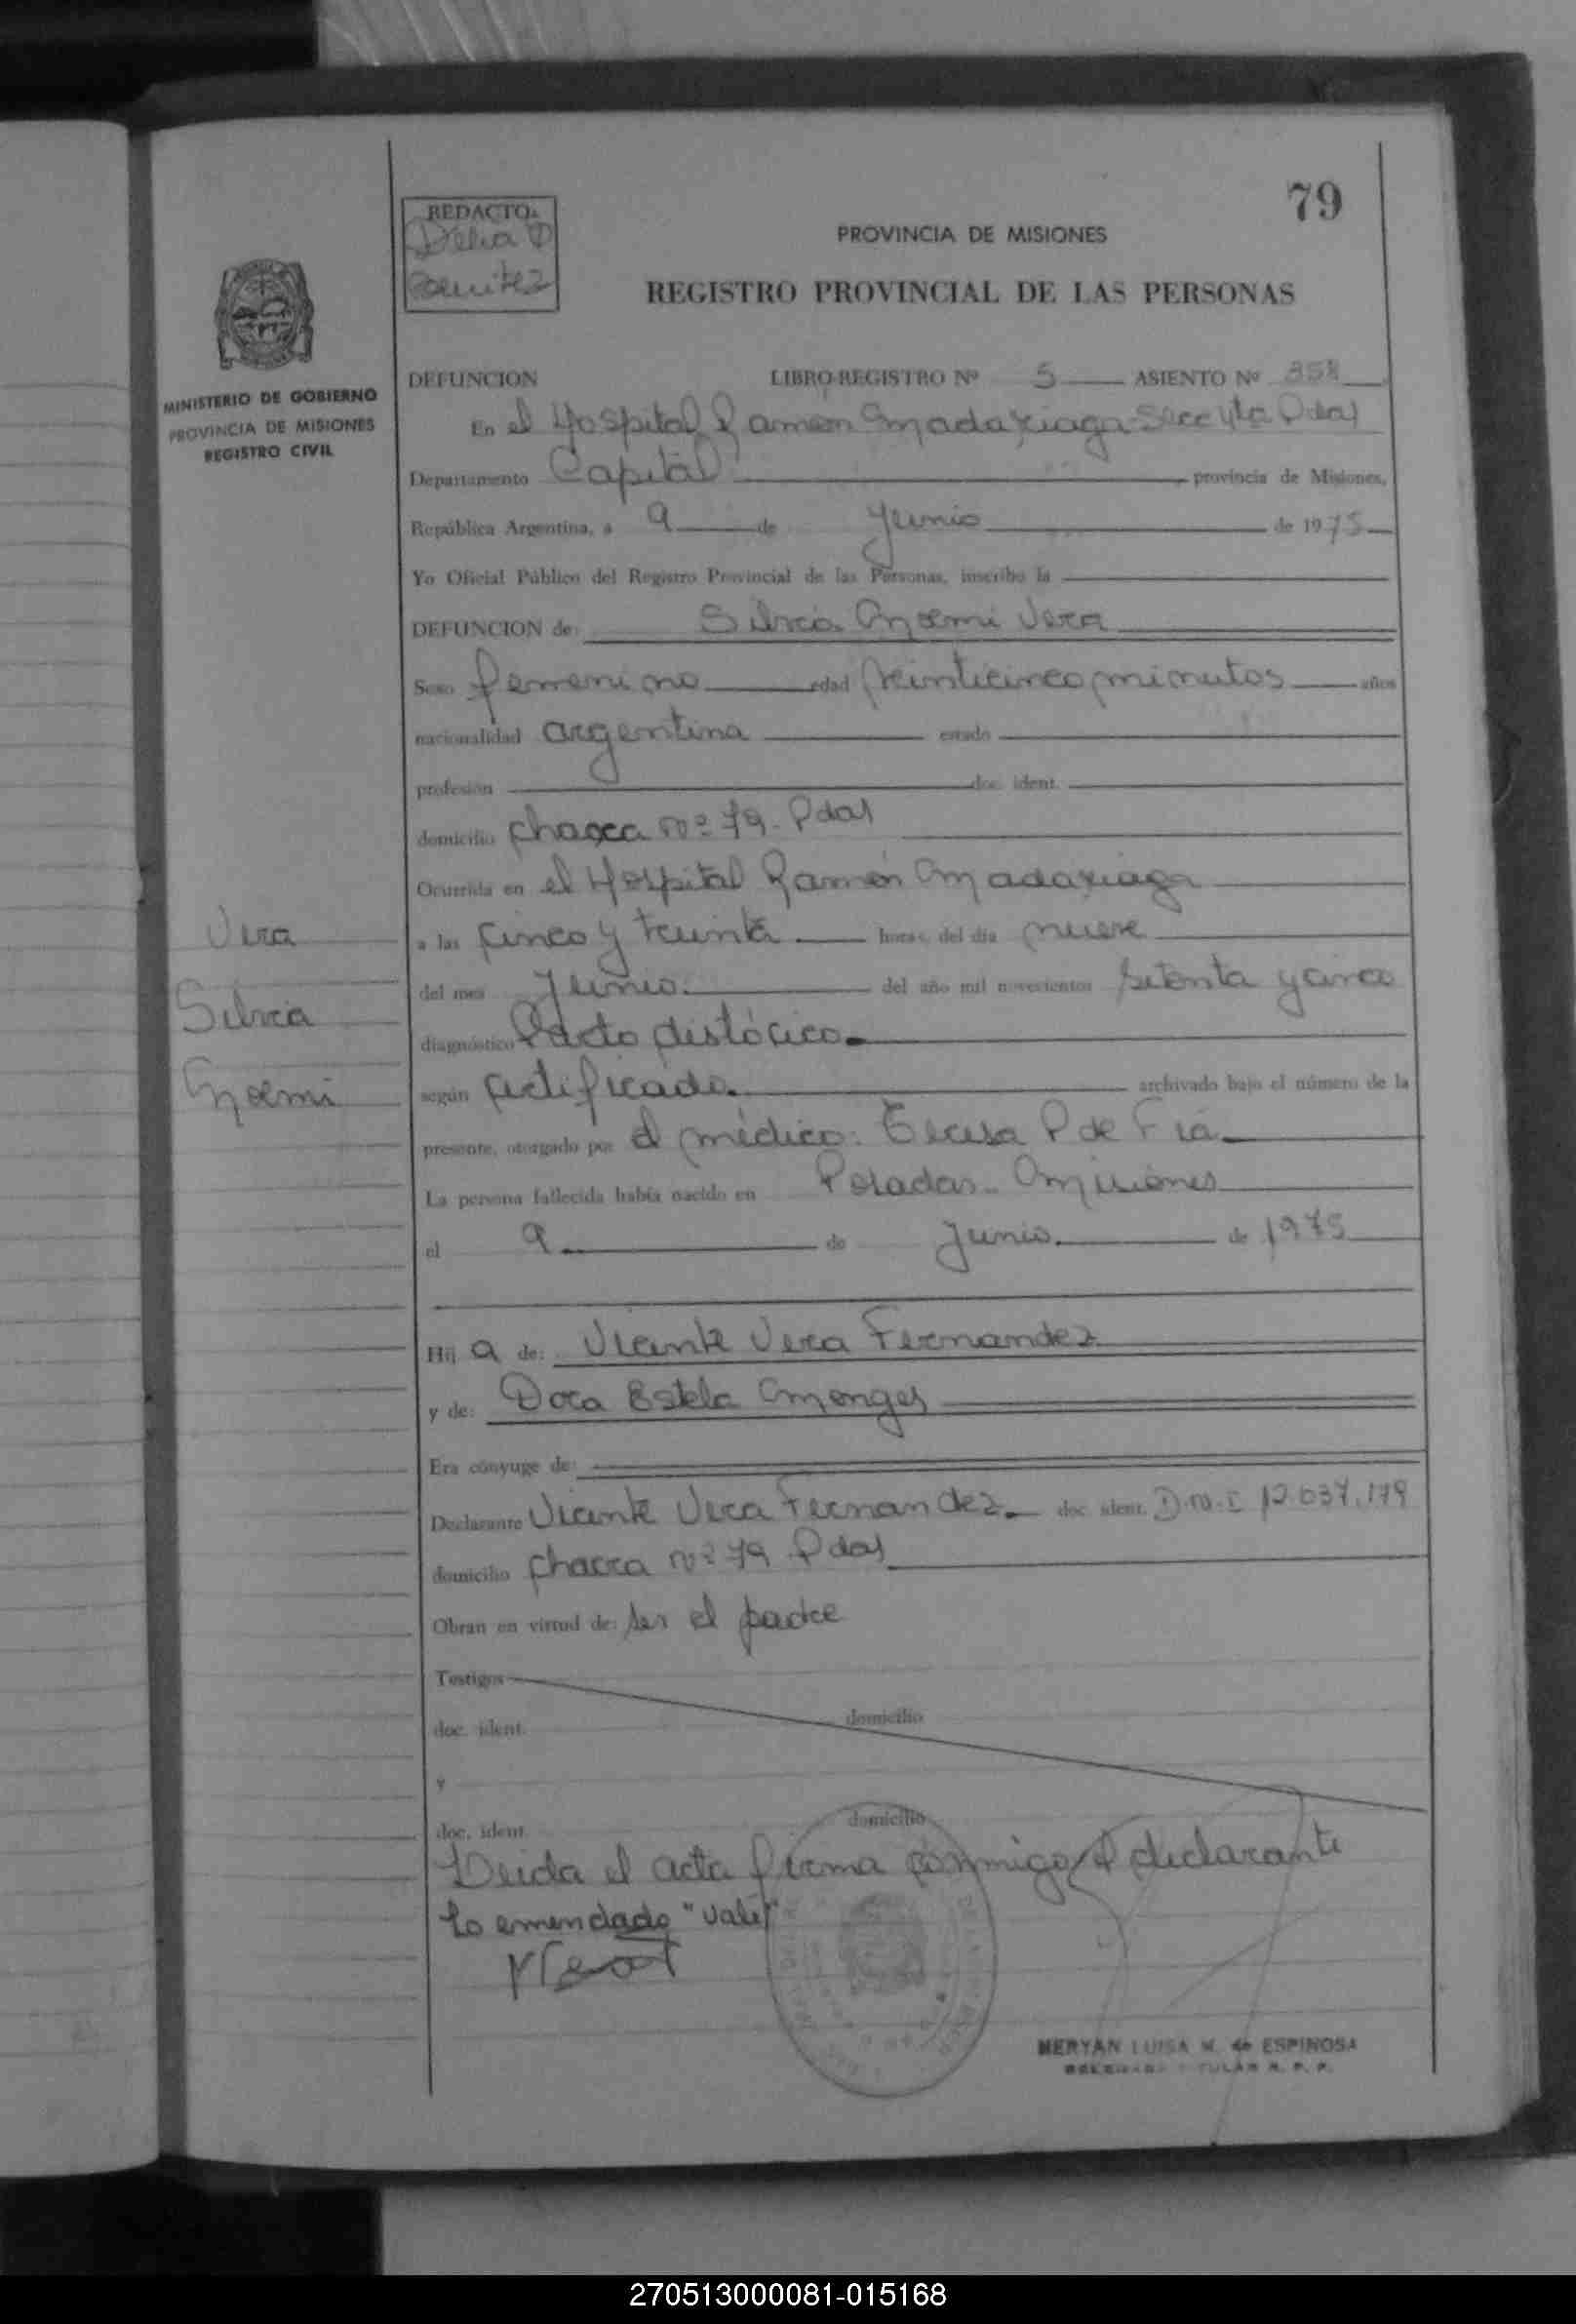 79
REDACTO:
Delia D
Benitez
PROVINCIA DE MISIONES
REGISTRO PROVINCIAL DE LAS PERSONAS
MINISTERIO DE GOBIERNO
PROVINCIA DE MISIONES
REGISTRO CIVIL
DEFUNCION LIBRO-REGISTRO Nº 5 ASIENTO Nº 358
En el Hospital Ramón Madariaga Secc 4ta Pdas
Departamento Capital provincia de Misiones,
República Argentina, a 9 de Junio de 1975
Yo Oficial Público del Registro Provincial de las Personas, inscribo la
DEFUNCION de: Silvia Noemi Vera
Sexo femenino edad veinticinco minutos años
nacionalidad argentina estado
profesión doc. ident.
domicilio chacra nº 79. Pdas
Ocurrida en el Hospital Ramón Madariaga
Vera
a las cinco y treinta horas, del día nueve
del mes Junio. del año mil novecientos setenta y cinco
Silvia
diagnóstico Parto distócico.
Noemi
según certificado. archivado bajo el número de la
presente, otorgado por el médico: Teresa P de Fra.
La persona fallecida había nacido en Posadas. Misiones
el 9. de Junio. de 1975
Hij a de: Vicente Vera Fernandez
y de: Dora Estela Monges
Era cónyuge de:
Declarante Vicente Vera Fernandez. doc. ident. D.N.I 12.037.179
domicilio chacra nº 79 Pdas
Obran en virtud de: ser el padre
Testigos
doc. ident. domicilio
y
doc. ident. domicilio
Leida el acta firma conmigo el declarante
Lo emendado "vale"
MERYAN LUISA M. de ESPINOSA
TITULAR R. P. P.
270513000081-015168